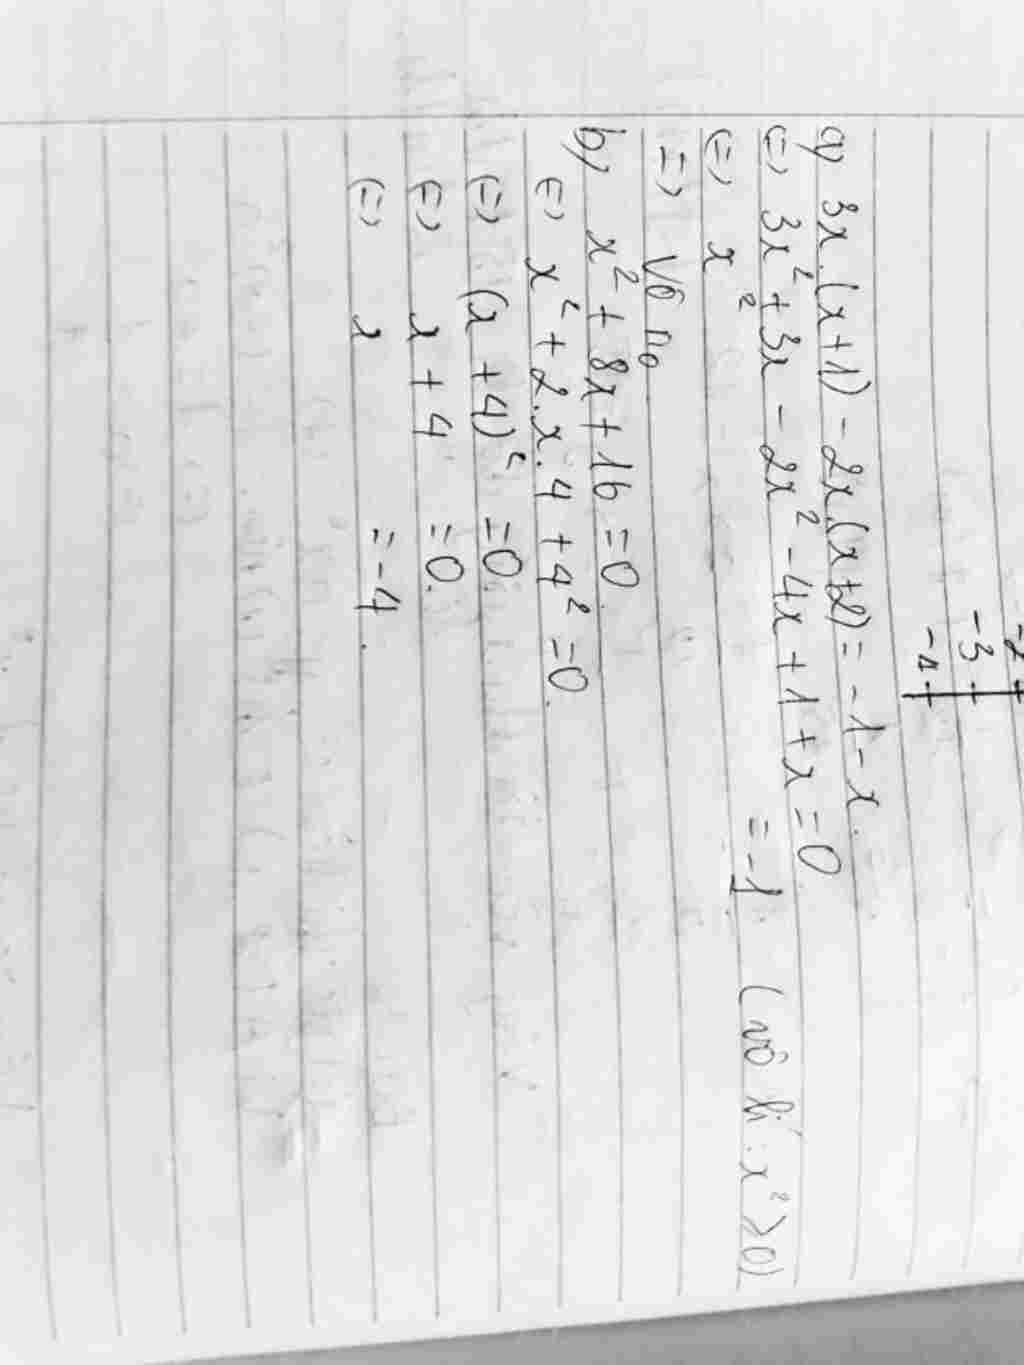 -2
-3
-4
a) 3x.(x+1) - 2x.(x+2) = -1-x.
(=) 3x² + 3x - 2x² - 4x + 1 + x = 0
(=) x² = -1. (vô lí: x² ≥ 0)
=) Vô n0
b) x² + 8x + 16 = 0.
(=) x² + 2.x.4 + 4² = 0.
(=) (x + 4)² = 0.
(=) x + 4 = 0.
(=) x = -4.